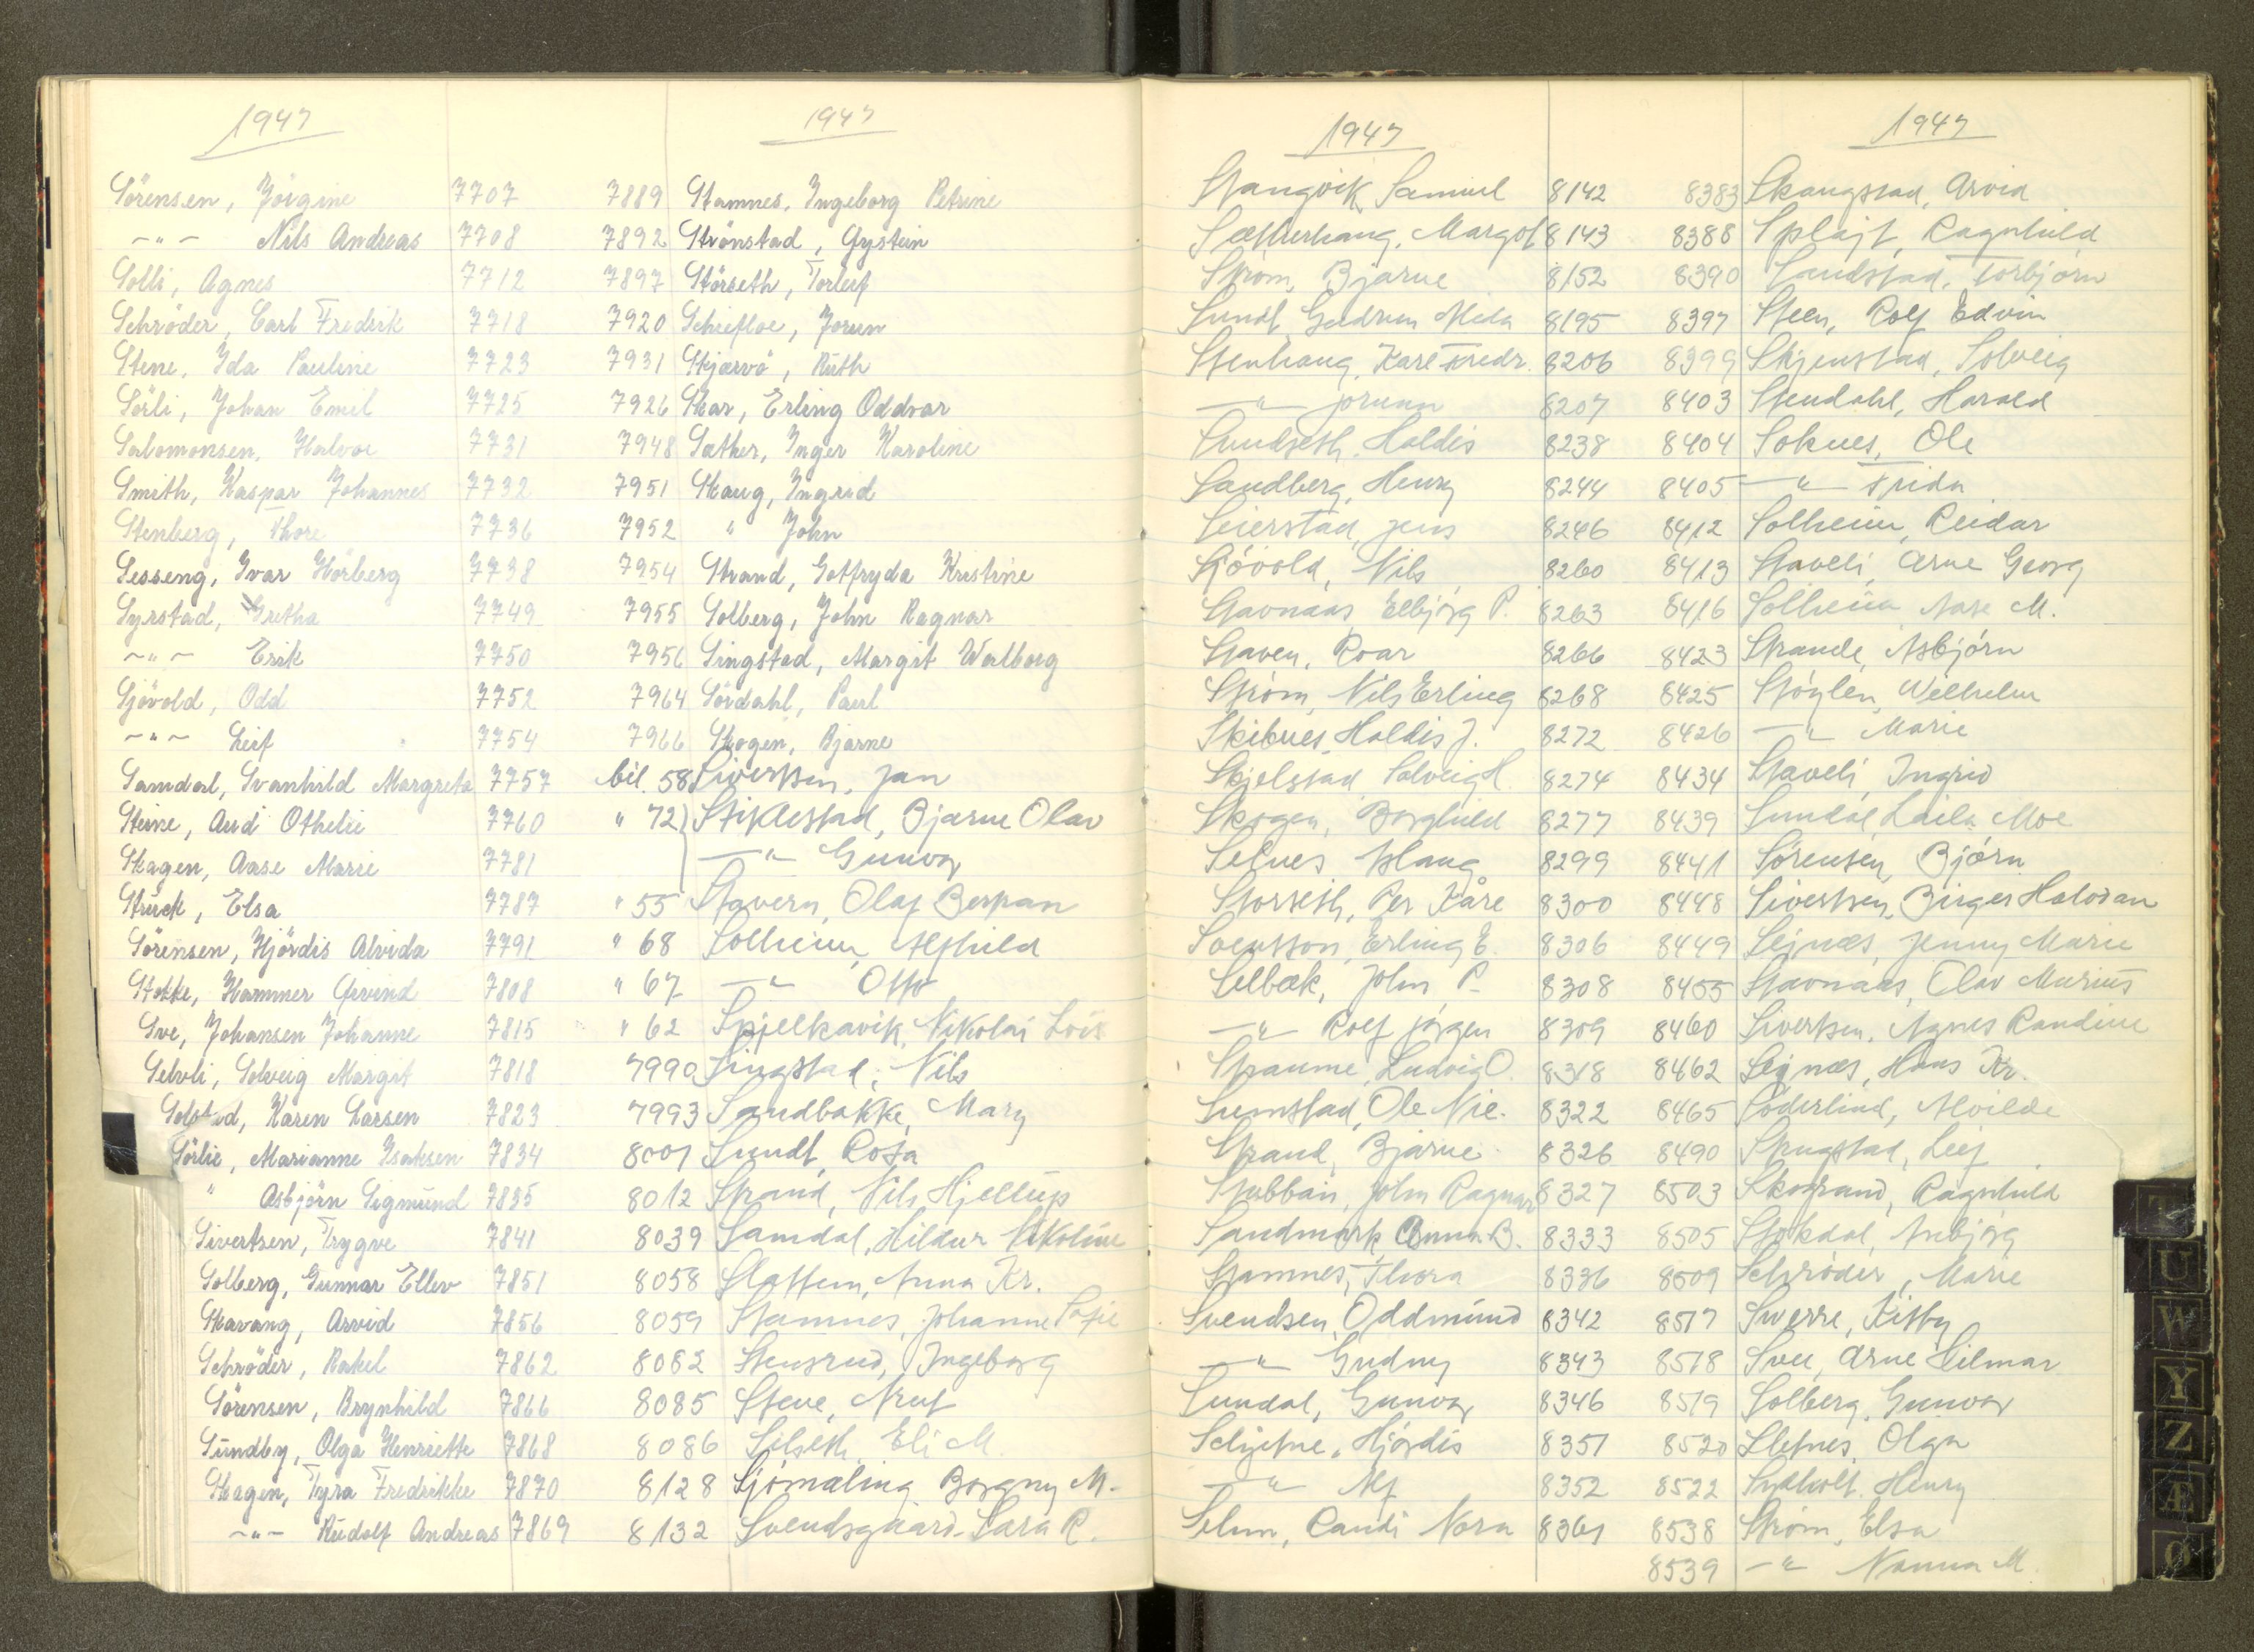 1947
Sörensen, Jörgine 7707
-"- Nils Andreas 7708
Solli, Agnes 7712
Schröder, Carl Fredrik 7718
Stene, Ida Pauline 7723
Sörli, Johan Emil 7725
Salomonsen, Halvor 7731
Smith, Kaspar Johannes 7732
Stenberg, Thore 7736
Sesseng, Ivar Hörberg 7738
Syrstad, Gretha 7749
-"- Erik 7750
Sjövold, Odd 7752
-"- Leif 7754
Samdal, Svanhild Margreta 7757
Steine, Aud Othelie 7760
Skagen, Aase Marie 7781
Struck, Elsa 7787
Sörensen, Hjördis Alvida 7791
Stokke, Hammer Öivind 7808
Sve, Johansen Johanne 7815
Selvli, Solveig Margit 7818
Solstad, Karen Larsen 7823
Sörlie, Marianne Isaksen 7834
" Asbjörn Sigmund 7835
Sivertsen, Trygve 7841
Solberg, Gunnar Ellev 7851
Skavang, Arvid 7856
Schröder, Rakel 7862
Sörensen, Brynhild 7866
Sundby, Olga Henriette 7868
Skagen, Tyra Fredrikke 7870
-"- Rudolf Andreas 7869
1947
7889 Stamnes, Ingeborg Petrine
7892 Strönstad, Øystein
7897 Störseth, Torleif
7920 Schiefloe, Jorun
7931 Skjærvö, Ruth
7926 Skar, Erling Oddvar
7948 Sæther, Inger Karoline
7951 Skaug, Ingrid
7952 " John
7954 Strand, Gotfryda Kristine
7955 Solberg, John Ragnar
7956 Singstad, Margit Walborg
7964 Sördahl, Paul
7966 Skogen, Bjarne
bil. 58 Sivertsen, Jan
" 72 Stiklestad, Bjarne Olav
-"- Gunvor
" 55 Stavern, Olaf Bertran
" 68 Solheim, Alfhild
" 67 -"- Otto
" 62 Spjelkavik, Nikolai Lois
7990 Singstad, Nils
7993 Sandbakke, Mary
8001 Sundt, Rosa
8012 Strand, Nils Hjeltup
8039 Samdal, Hildur Nikoline
8058 Slattum, Anna Kr.
8059 Stamnes, Johanne Sofie
8082 Stensrud, Ingeborg
8085 Stene, Arnt
8086 Silseth, Eli M.
8128 Sjömæling Borgny M.
8132 Svendsgaard, Sara R.
1947
Stangvik, Samuel 8142
Sætterhaug, Margot 8143
Strøm, Bjarne 8152
Sundt, Gudrun Meda 8195
Stenhaug, Kare Fredr. 8206
-"- Jorunn 8207
Sundseth, Haldis 8238
Sandberg, Henry 8244
Seierstad, Jens 8246
Sjóvold, Nils 8260
Stavnaas, Elbjørg P. 8263
Staven, Roar 8266
Strøm, Nils Erling 8268
Skibnes, Haldis J. 8272
Skjelstad, Solveig H. 8274
Skogen, Borghild 8277
Selnes, Aslaug 8299
Storseth, Per Kåre 8300
Svensson, Erling E. 8306
Selbæk, John P. 8308
-"- Rolf Jørgen 8309
Straume, Ludvig O. 8318
Sumstad, Ole Nic. 8322
Strand, Bjarne 8326
Stubban, John Ragnar 8327
Sandmork, Anna B. 8333
Stamnes, Thora 8336
Svendsen, Oddmund 8342
-"- Gudny 8343
Sundal, Gunvor 8346
Schjetne, Hjördis 8351
-"- Alf 8352
Selnn, Randi Nora 8361
1947
8383 Skaugstad, Arvid
8388 Splajt, Ragnhild
8390 Sandstad, Torbjørn
8397 Steen, Rolf Edvin
8399 Skjenstad, Solveig
8403 Stendahl, Harald
8404 Soknes, Ole
8405 -"- Frida
8412 Solheim, Reidar
8413 Staveli, Arne Georg
8416 Solheim, Aase M.
8423 Strande, Asbjørn
8425 Støylen, Wilhelm
8426 -"- Marie
8434 Staveli, Ingrid
8439 Sundal, Laila Moe
8441 Sørensen, Bjørn
8448 Sivertsen, Birger Halvdan
8449 Sejnæs, Jenny Marie
8455 Stavnaas, Olav Marius
8460 Sivertsen, Agnes Randine
8462 Sejnæs, Hans Kr.
8465 Söderlind, Alvilde
8490 Skugstad, Leif
8503 Skogrand, Ragnhild
8505 Stokdal, Anbjørg
8509 Schröder, Marie
8517 Sverre, Kitty
8518 Svee, Arne Hilmar
8519 Solberg, Gunvor
8520 Sletnes, Olga
8522 Sydholt, Henry
8538 Strøm, Elsa
8539 -"- Nanna M.
T
U
W
Y
Z
Æ
Ø